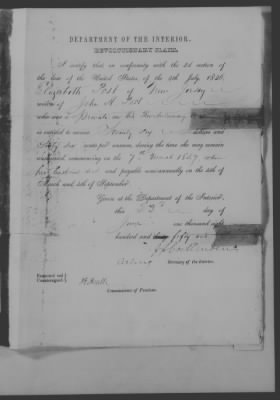 DEPARTMENT OF THE INTERIOR.
REVOLUTIONARY CLAIM.
I certify that in conformity with the 2d section of
the law of the United States of the 4th July, 1836,
Elizabeth Post of New Jersey
widow of John H Post
who was a private in the Revolutionary
is entitled to receive dollars and
Sixty six cents per annum, during the time she may remain
unmarried, commencing on the 7th
and payable semi-annually on the 4th of
March and 4th of September.
Given at the Department of the Interior,
this day of
one thousand eight
hundred and fifty one
Acting Secretary of the Interior.
Examined and
Countersigned
J. E. Heath
Commissioner of Pensions.